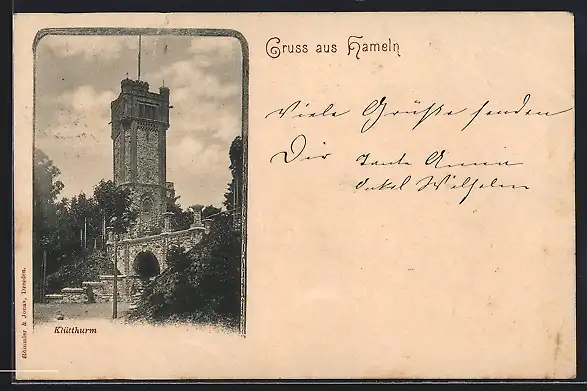 Gruss aus Hameln
Viele Grüße senden
Dir Tante Anna
Onkel Wilhelm
Klütthurm
Stümmler & Jonas, Dresden.